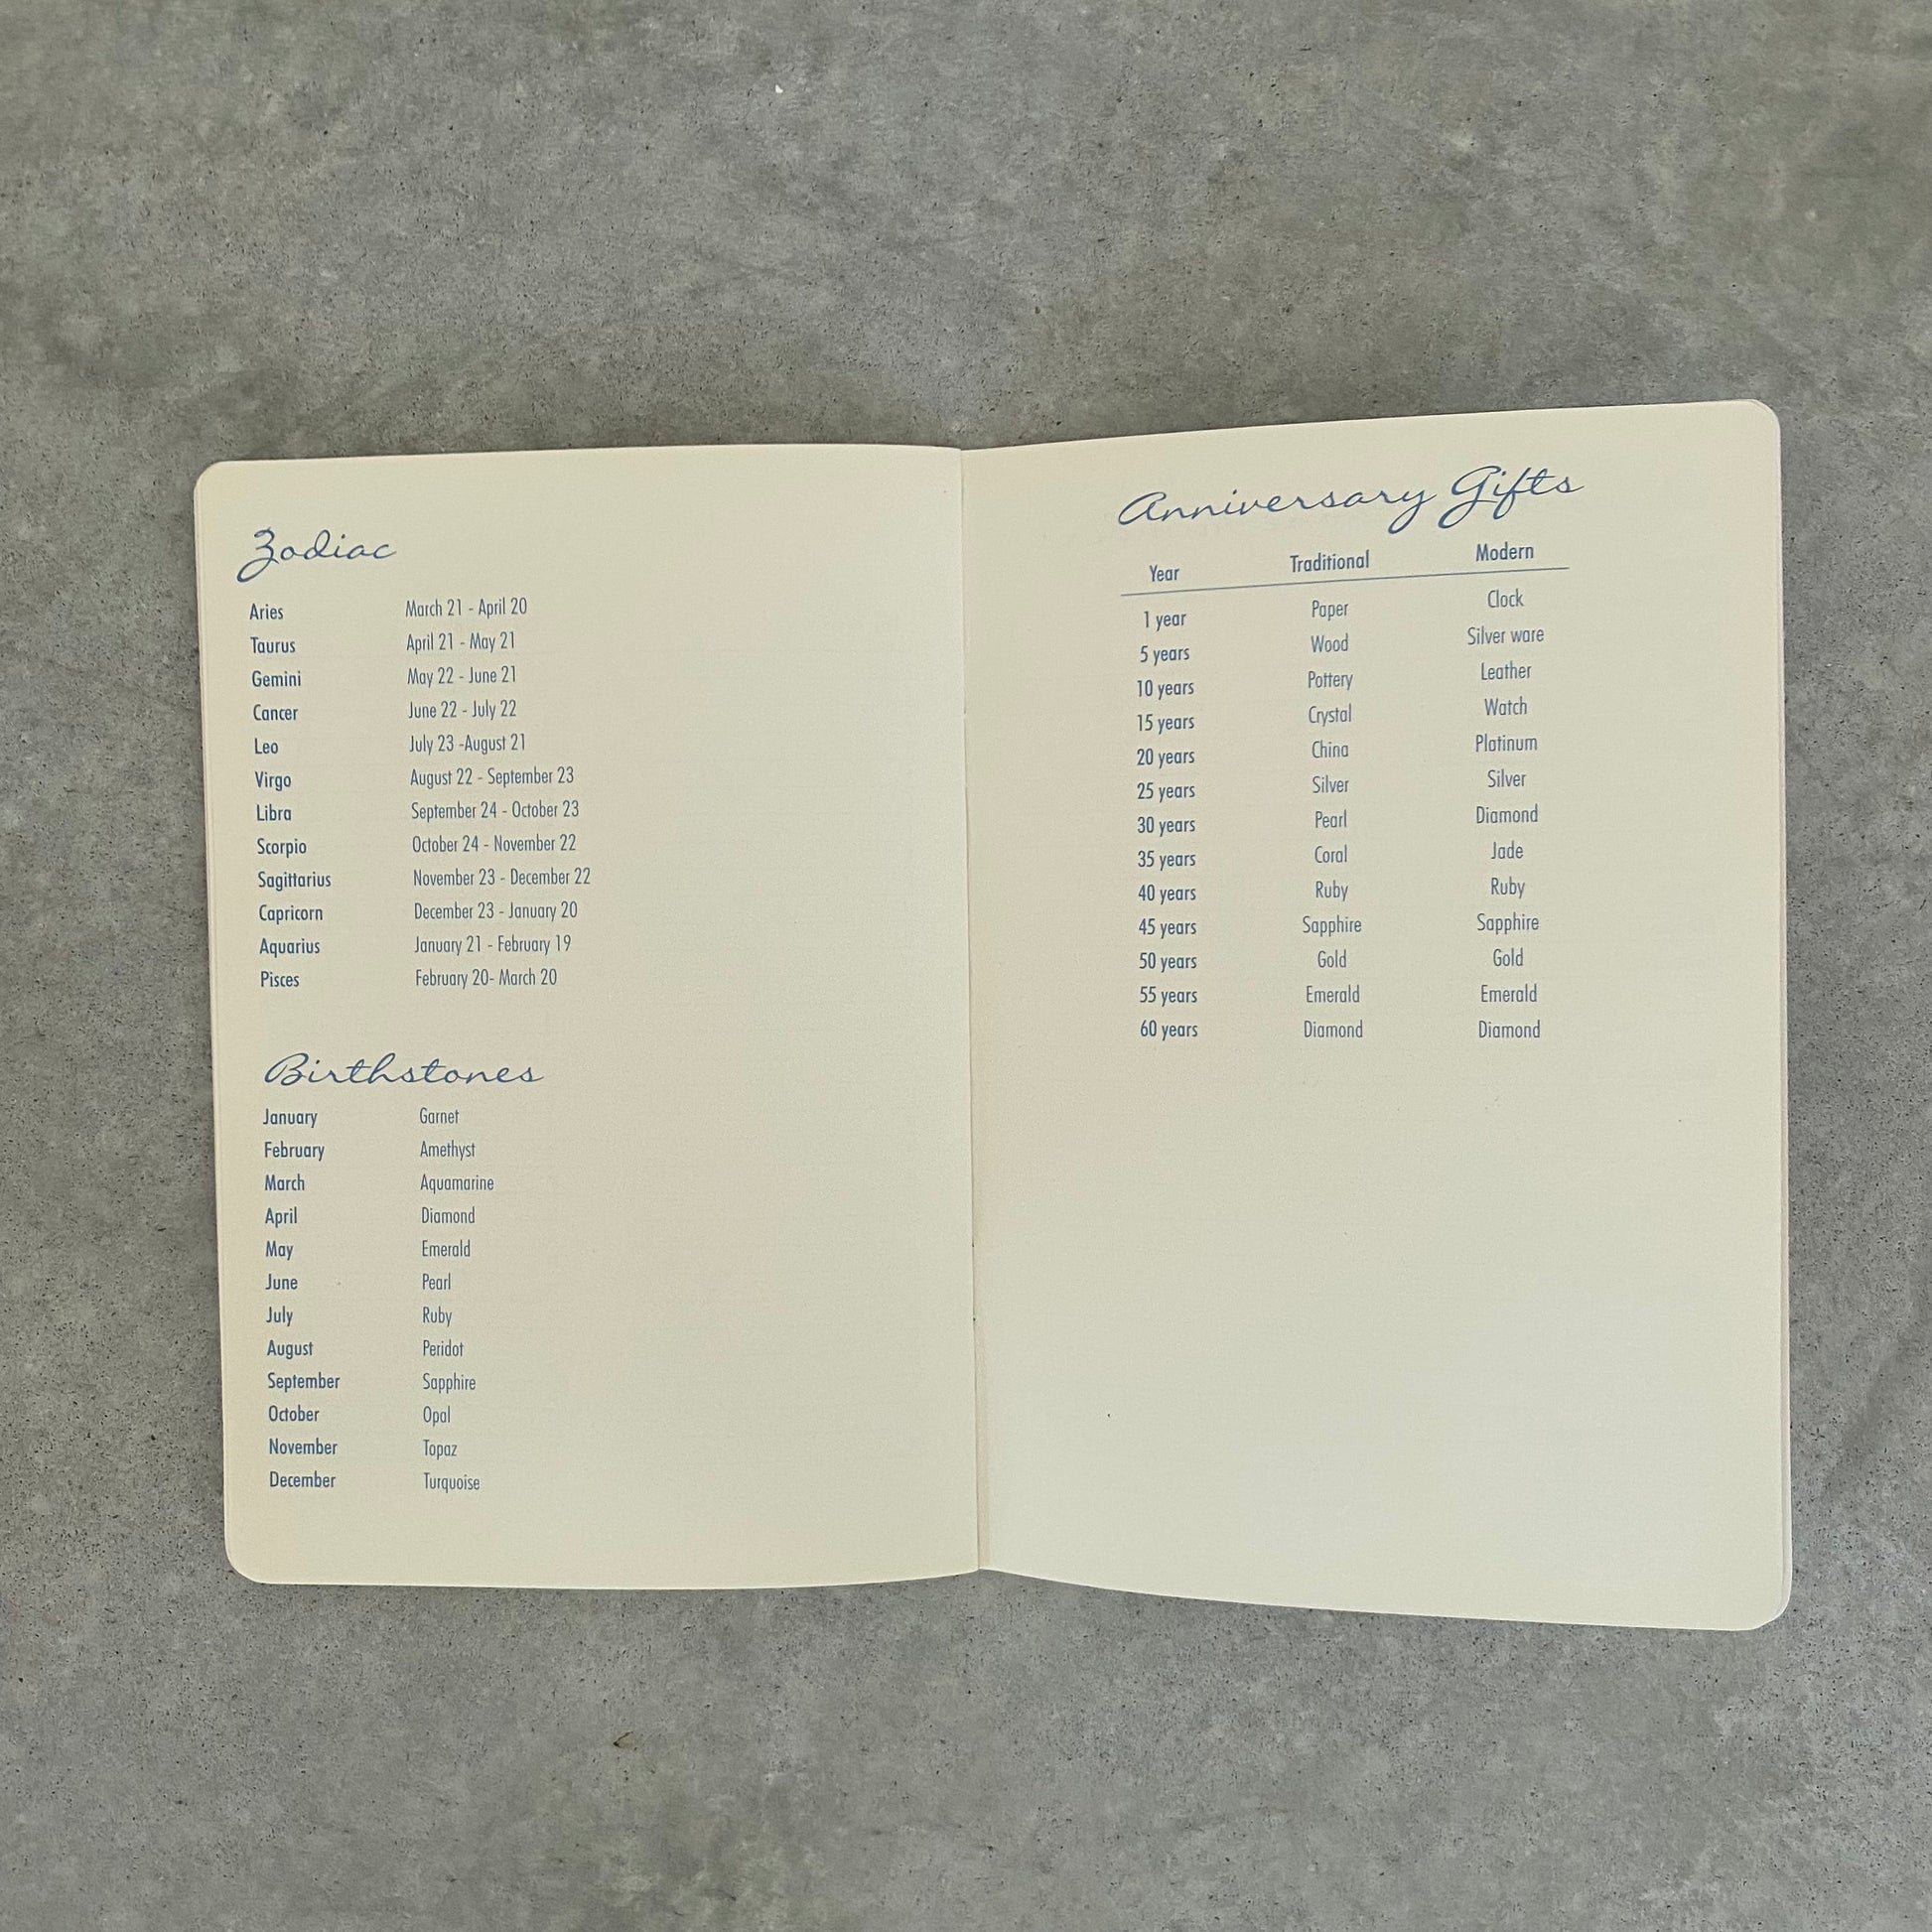 Zodiac
Aries March 21 - April 20
Taurus April 21 - May 21
Gemini May 22 - June 21
Cancer June 22 - July 22
Leo July 23 -August 21
Virgo August 22 - September 23
Libra September 24 - October 23
Scorpio October 24 - November 22
Sagittarius November 23 - December 22
Capricorn December 23 - January 20
Aquarius January 21 - February 19
Pisces February 20- March 20
Birthstones
January Garnet
February Amethyst
March Aquamarine
April Diamond
May Emerald
June Pearl
July Ruby
August Peridot
September Sapphire
October Opal
November Topaz
December Turquoise
Anniversary Gifts
Year Traditional Modern
1 year Paper Clock
5 years Wood Silver ware
10 years Pottery Leather
15 years Crystal Watch
20 years China Platinum
25 years Silver Silver
30 years Pearl Diamond
35 years Coral Jade
40 years Ruby Ruby
45 years Sapphire Sapphire
50 years Gold Gold
55 years Emerald Emerald
60 years Diamond Diamond